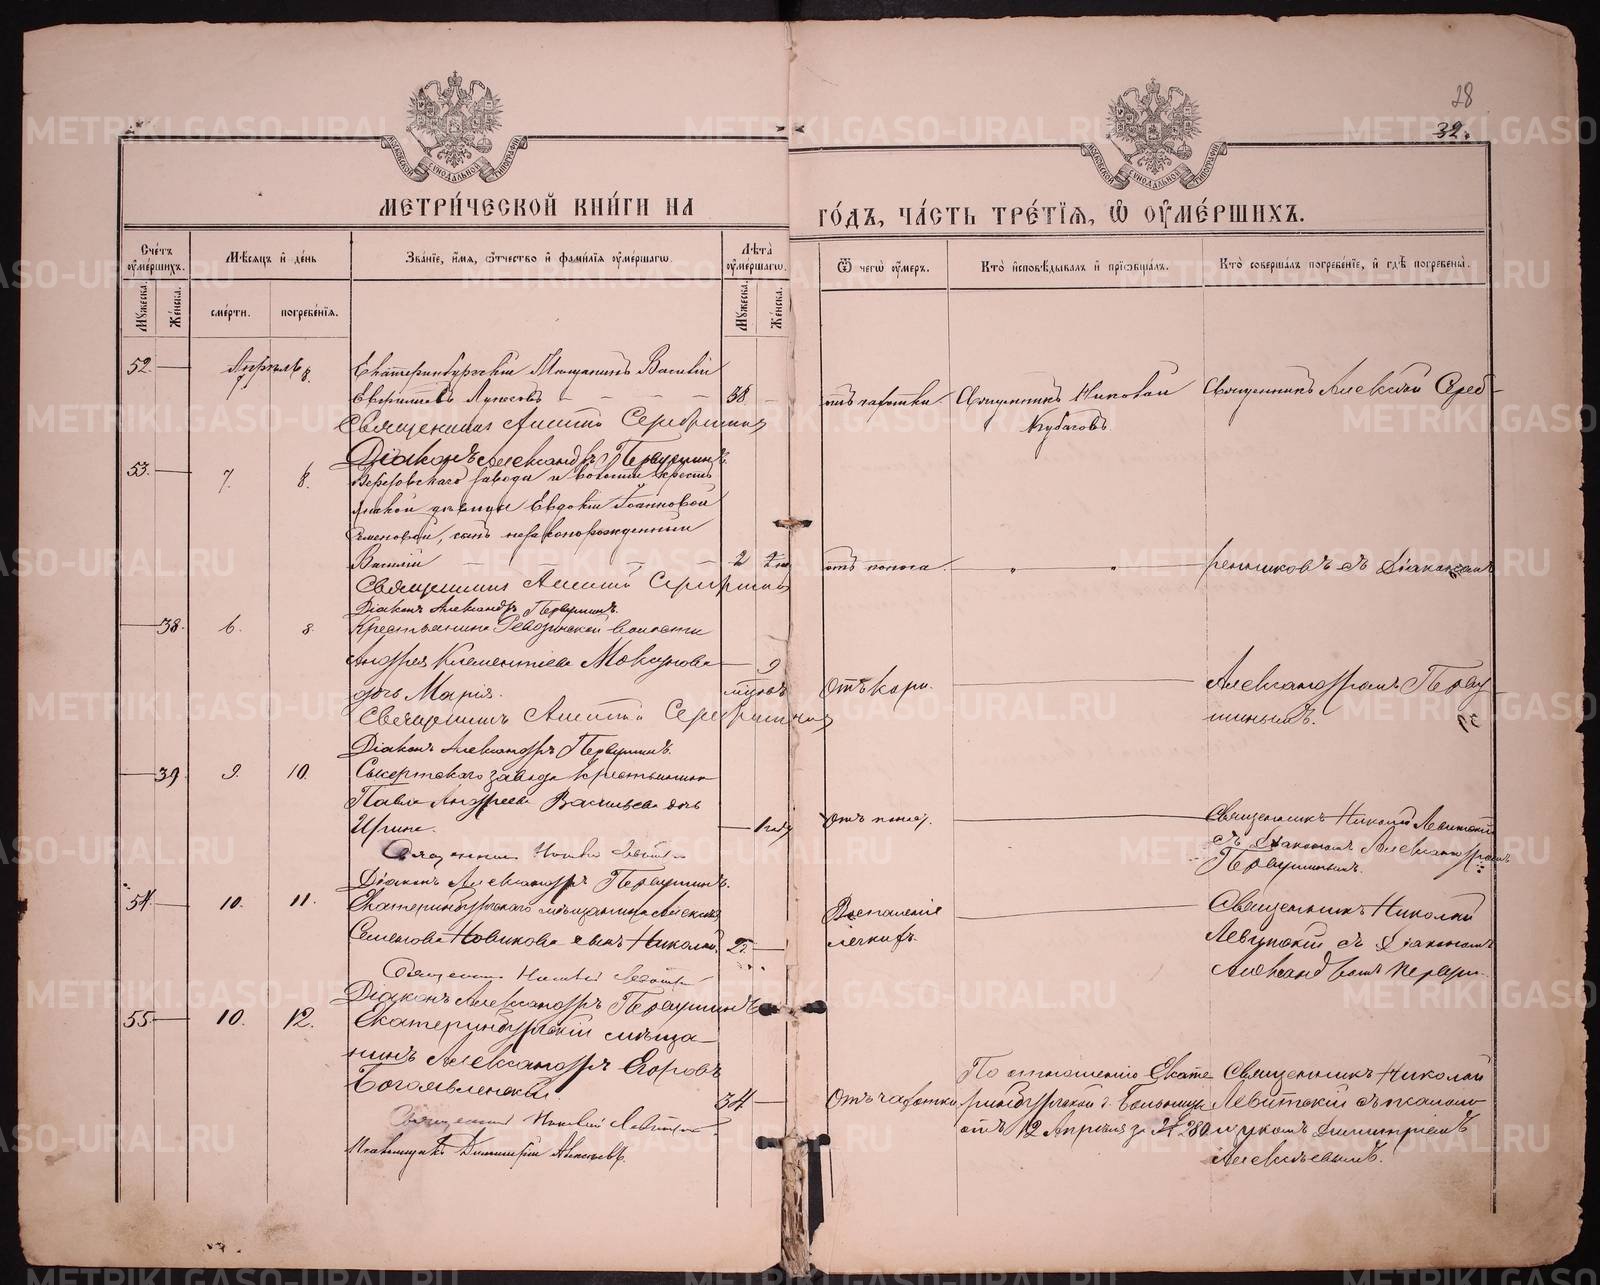 28
32.
МОСКОВСКОЙ СѴНОДАЛЬНОЙ ТИПОГРАФІИ
МОСКОВСКОЙ СѴНОДАЛЬНОЙ ТИПОГРАФІИ
МЕТРИ́ЧЕСКОЙ КНИ́ГИ НА
ГО́ДЪ, ЧА́СТЬ ТРЕ́ТЇѦ, Ѿ ОУМЕ́РШИХЪ.
Сче́тъ оуме́ршихъ.
Мꙋжеска.
Же́нска.
Мѣ́сяцъ и҆ де́нь
сме́рти.
погребе́нїѧ.
Зва́нїе, и҆́мѧ, ѻ҆́тчество и҆ фами́лїѧ оуме́ршагѡ.
Лѣ́та оуме́ршагѡ.
Мꙋжеска.
Же́нска.
Ѿ чегѡ̀ оу҆́меръ.
Кто̀ и҆сповѣ́дывалъ и҆ прїѡбща́лъ.
Кто̀ соверша́лъ погребе́нїе, и҆ гдѣ̀ погребены̀.
52 Апрѣль 7 8. Екатеринбургскій Мѣщанинъ Василій
38 отъ чахотки Священникъ Николай
Священникъ Алексѣй Сереб-
Священникъ Алексѣй Серебренниковъ
Діаконъ Александръ Первушинъ.
53. 7. 8. Березовскаго завода и волости крестьянской дѣвицы Евдокіи Іоанновой
Семеновой, сынъ незаконорожденный
Василій 2 отъ поноса. " " ренниковъ съ Діакономъ
Священникъ Алексѣй Серебренниковъ
Діаконъ Александръ Первушинъ.
38. 6. 8. Крестьянина Ревдинской волости
Андрея Климентіева
дочь Марія. 9 мѣсяцъ Отъ кори.
Александромъ Первушинымъ.
Священникъ Алексѣй Серебренниковъ
Діаконъ Александръ Первушинъ.
39 9. 10. Сысертскаго завода крестьянина
Павла Андреева Васильева дочь
Ирина. 1 годъ Отъ поноса.
Священникъ Николай Левитскій
съ Діакономъ Александромъ
Первушинымъ.
Священникъ Николай Левитскій
Діаконъ Александръ Первушинъ.
54. 10. 11. Екатеринбургскаго мѣщанина Алексѣя
Семенова Новикова сынъ Николай. Воспаленіе легкихъ.
Священникъ Николай
Левитскій съ Діакономъ
Александромъ Перву-
Священникъ Николай Левитскій
Діаконъ Александръ Первушинъ
55 10. 12. Екатеринбургскій мѣща-
нинъ Александръ Егоровъ
Богоявленскій. 34 Отъ чахотки
По отношенію Екате-
ринбургской г. Больницы
отъ 12 Апрѣля за № 280
Священникъ Николай
Левитскій съ псалом-
щикомъ Димитріемъ
Алексѣевымъ.
Священникъ Николай Левитскій
Псаломщикъ Димитрій Алексѣевъ.
METRIKI.GASO-URAL.RU